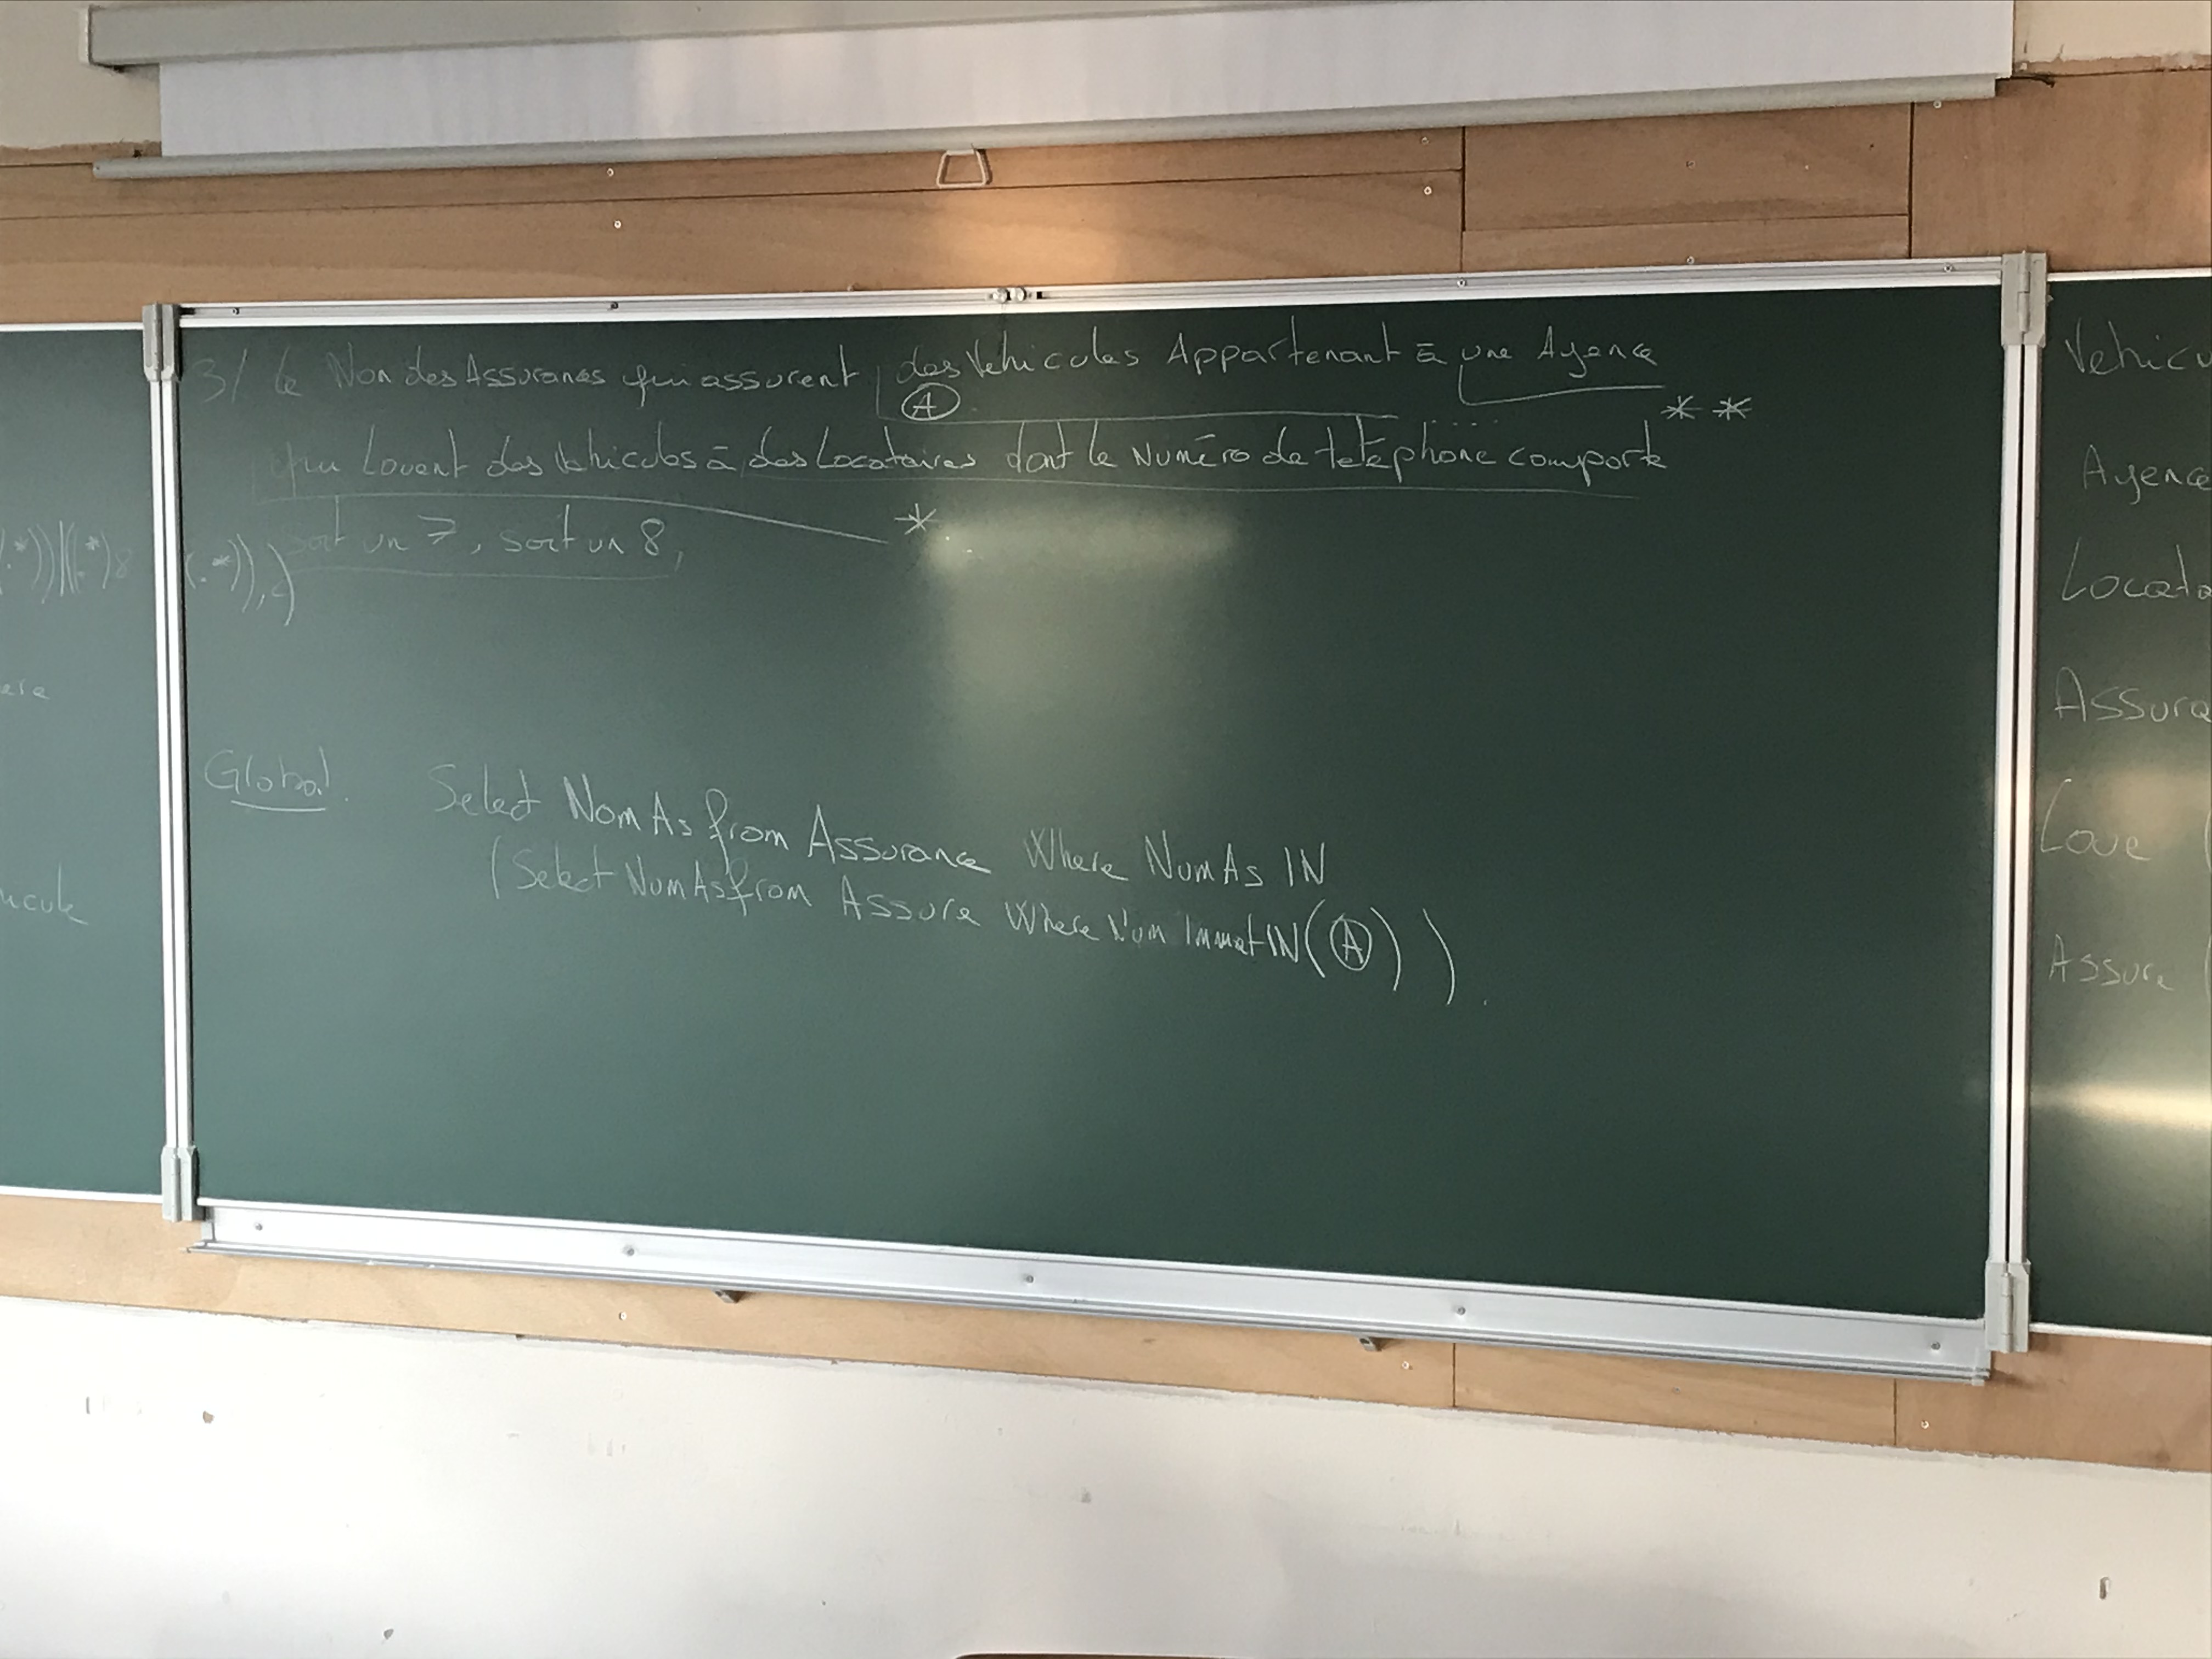 3/ Le Nom des Assurances qui assurent des Vehicules Appartenant à une Agence
A
* *
qui Louent des Vehicules à des Locataires dont le Numéro de telephone comporte
*
soit un 7, soit un 8,
.*))|(.*)8 (.*)),)
ere
Global.
Select NomAs from Assurance Where NumAs IN
(Select NumAs from Assure Where Num Immat IN (A) ) ).
icule
Vehicu
Agence
Locata
Assura
Loue (
Assure (